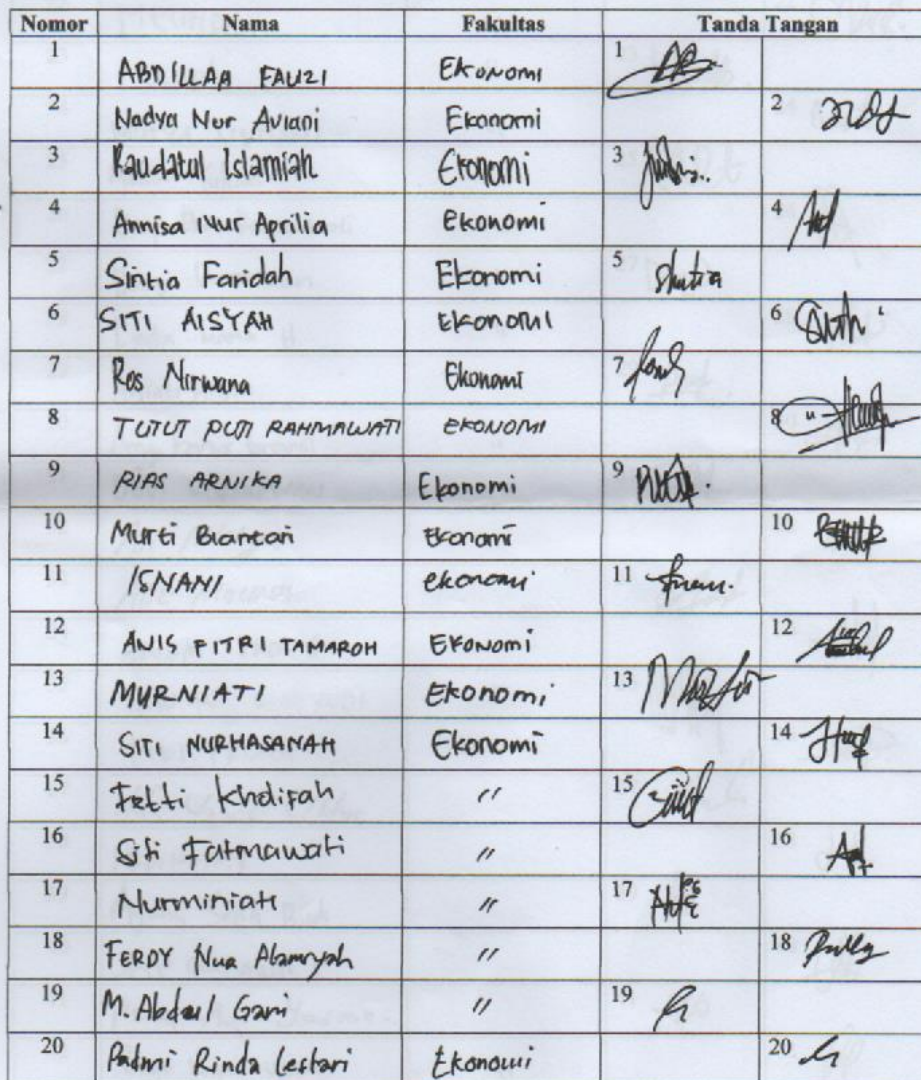 Nomor Nama Fakultas Tanda Tangan
1 ABDILLAH FAUZI Ekonomi 1
2 Nadya Nur Aviani Ekonomi 2
3 Raudatul Islamiah Ekonomi 3
4 Annisa Nur Aprilia Ekonomi 4
5 Sintia Faridah Ekonomi 5 Shintia
6 SITI AISYAH EKONOMI 6
7 Ros Nirwana Ekonomi 7
8 TUTUT PUTI RAHMAWATI EKONOMI 8
9 RIAS ARNIKA Ekonomi 9
10 Murti Biantari Ekonomi 10
11 ISNANI ekonomi 11
12 ANIS FITRI TAMAROH EKONOMI 12
13 MURNIATI Ekonomi 13
14 SITI NURHASANAH Ekonomi 14
15 Fetti Kholifah " 15
16 Siti Fatmawati " 16
17 Nurminiati " 17
18 FERDY Nur " 18
19 M. Abdul Gani " 19
20 Padmi Rinda Lestari Ekonomi 20